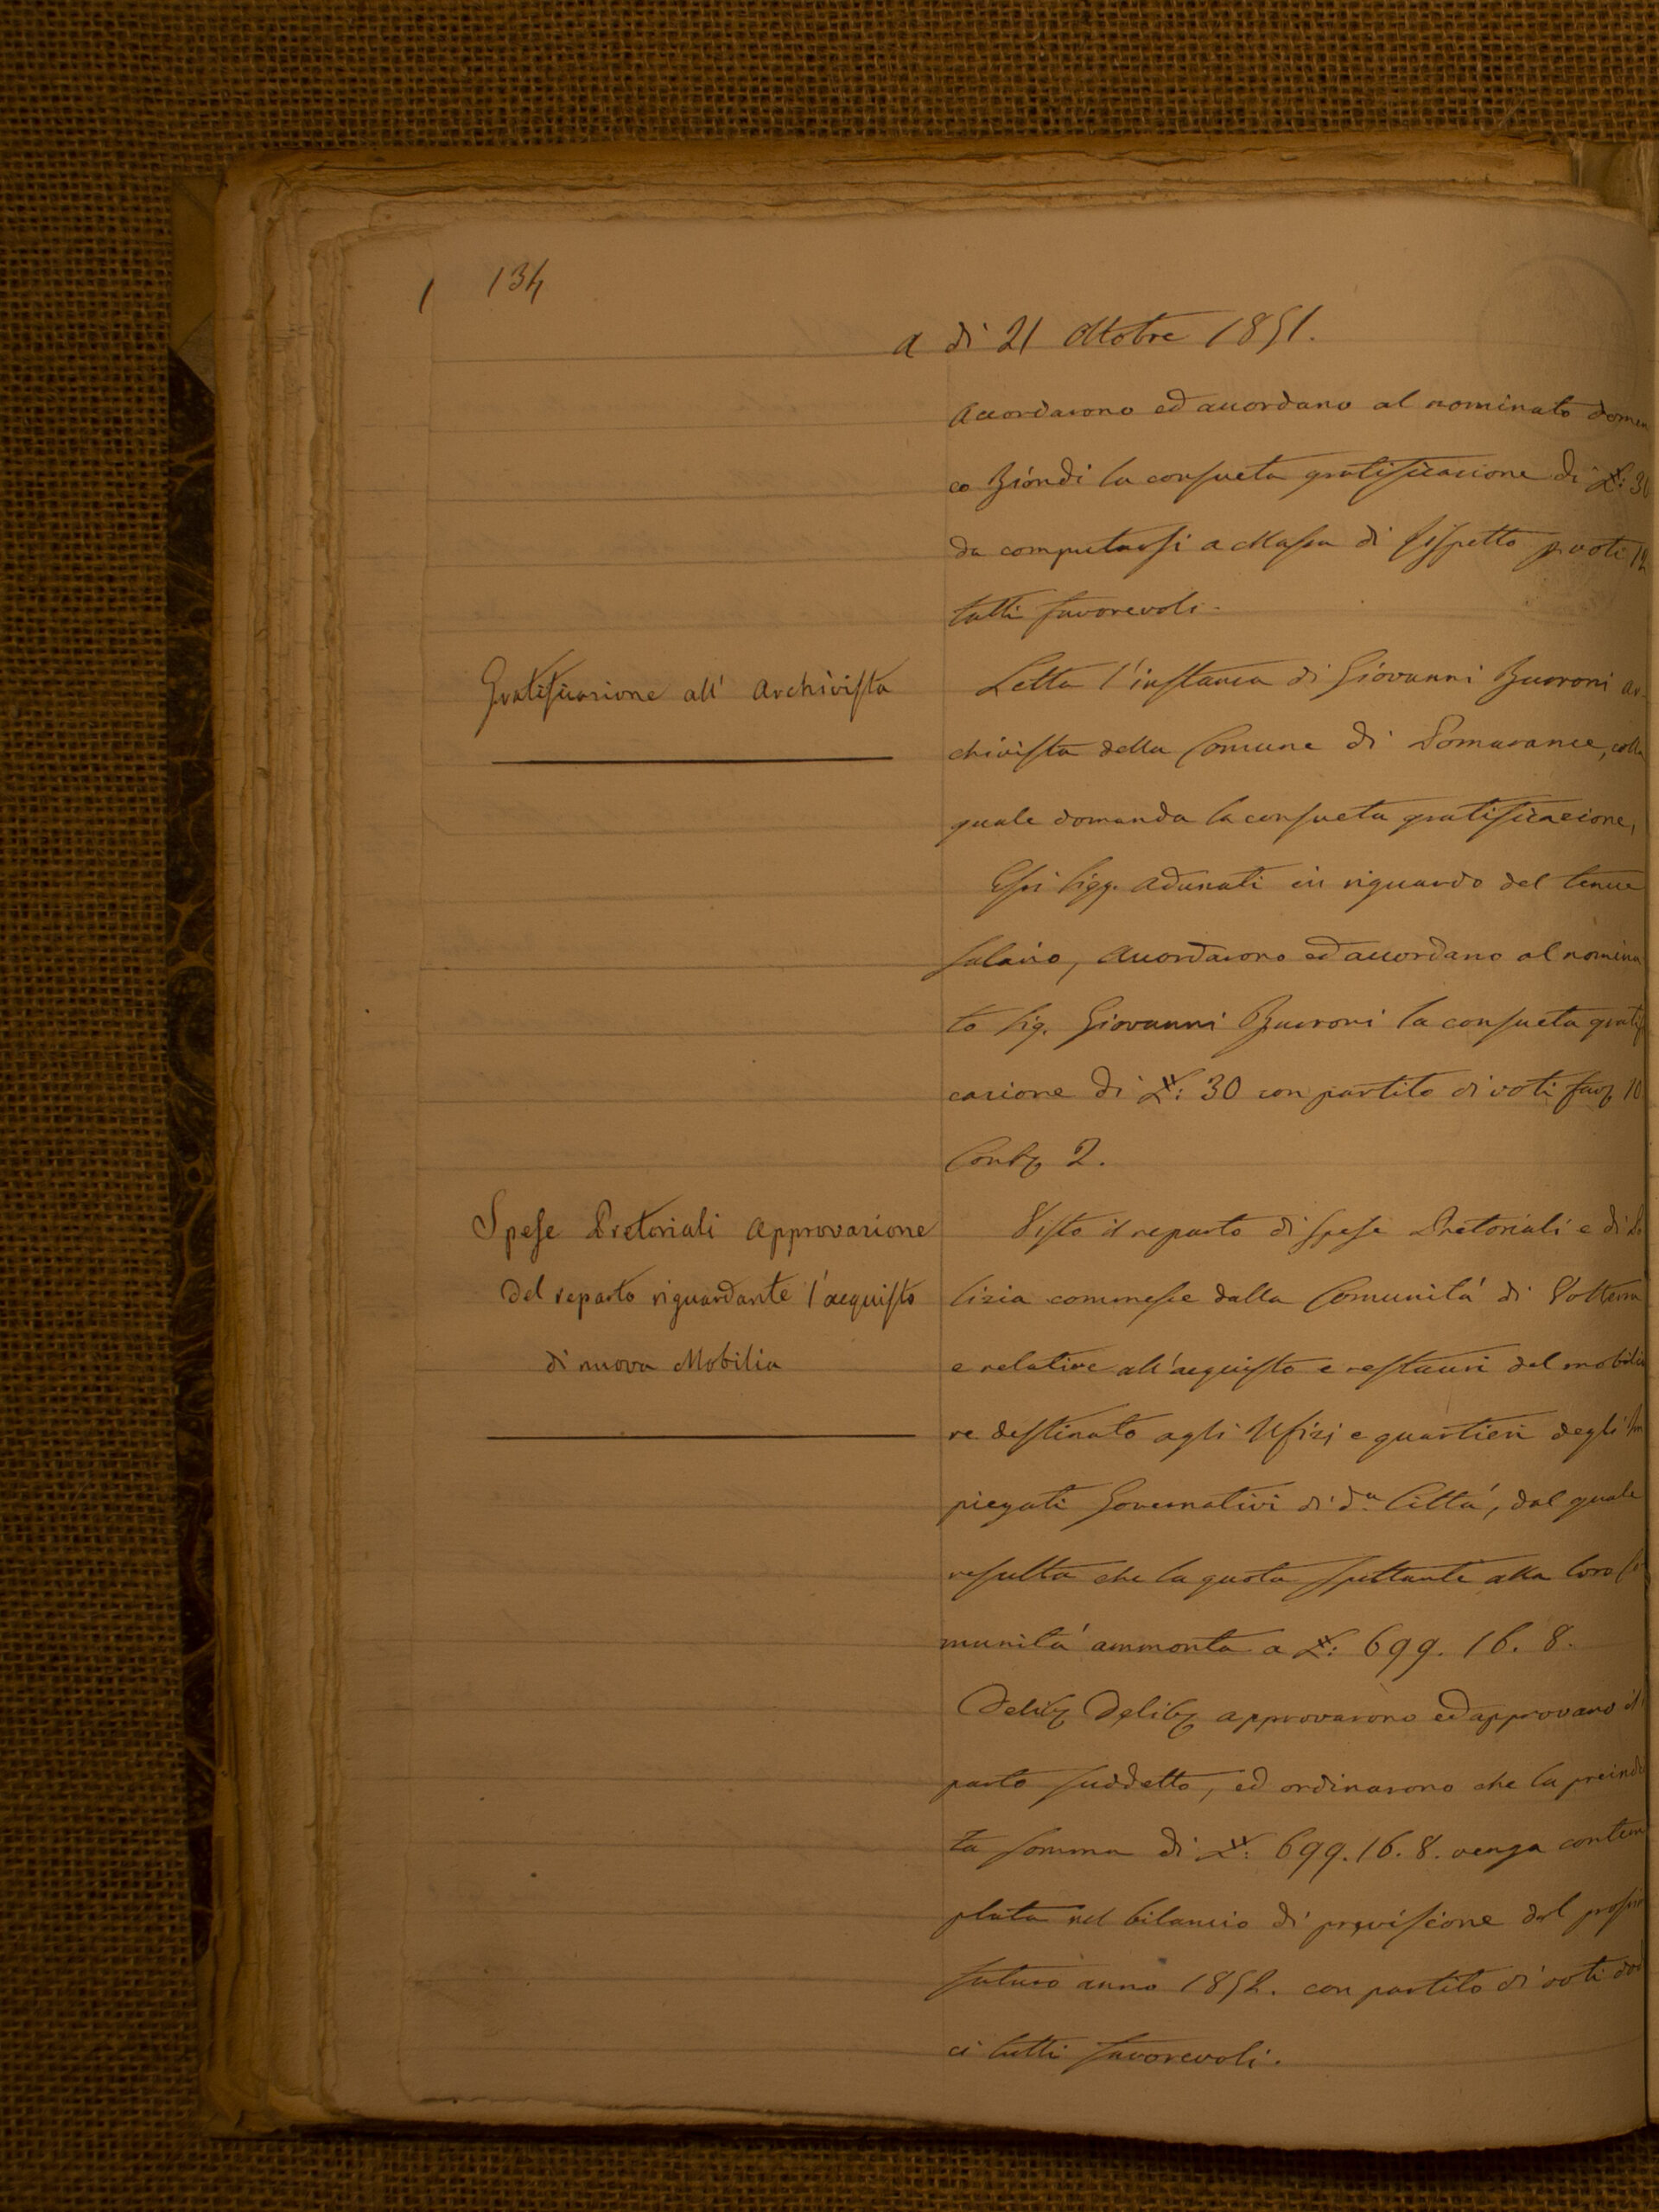 134
a di 21 Ottobre 1851.
Accordarono ed accordano al nominato Domeni
co Biondi la consueta gratificazione di £: 30
da computarsi a Massa di rispetto p voti 12
tutti favorevoli.
Gratificazione all' Archivista
Letta l'instanza di Giovanni Buroni Ar-
chivista della Comune di Pomarance, colla
quale domanda la consueta gratificazione,
Essi Sigg. Adunati in riguardo del tenue
salario, Accordarono ed accordano al nomina
to Sig. Giovanni Buroni la consueta gratifi
cazione di £: 30 con partito di voti fav 10
Cont 2.
Spese Pretoriali Approvazione
del reparto riguardante l'acquisto
di nuova Mobilia
Visto il reparto di spese Pretoriali e di Po
lizia commesse dalla Comunità di Volterra
e relative all'acquisto e restauri del mobilia
re destinato agli Ufizj e quartieri degli Im
piegati Governativi di d.a Città, dal quale
resulta che la quota spettante alla loro Co
munità ammonta a £: 699. 16. 8.
Delib Delib approvarono ed approvano il
parto suddetto, ed ordinarono che la preindi
ta somma di £: 699. 16. 8. venga contem
plata nel bilancio di previsione del prossimo
futuro anno 1852. con partito di voti dodi
ci tutti favorevoli.